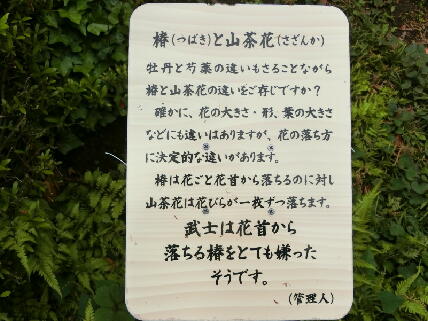 椿(つばき)と山茶花(さざんか)
牡丹と芍薬の違いもさることながら
椿と山茶花の違いをご存じですか?
確かに、花の大きさ・形、葉の大きさ
などにも違いはありますが、花の落ち方
に決定的な違いがあります。
椿は花ごと花首から落ちるのに対し
山茶花は花びらが一枚ずつ落ちます。
武士は花首から
落ちる椿をとても嫌った
そうです。
(管理人)